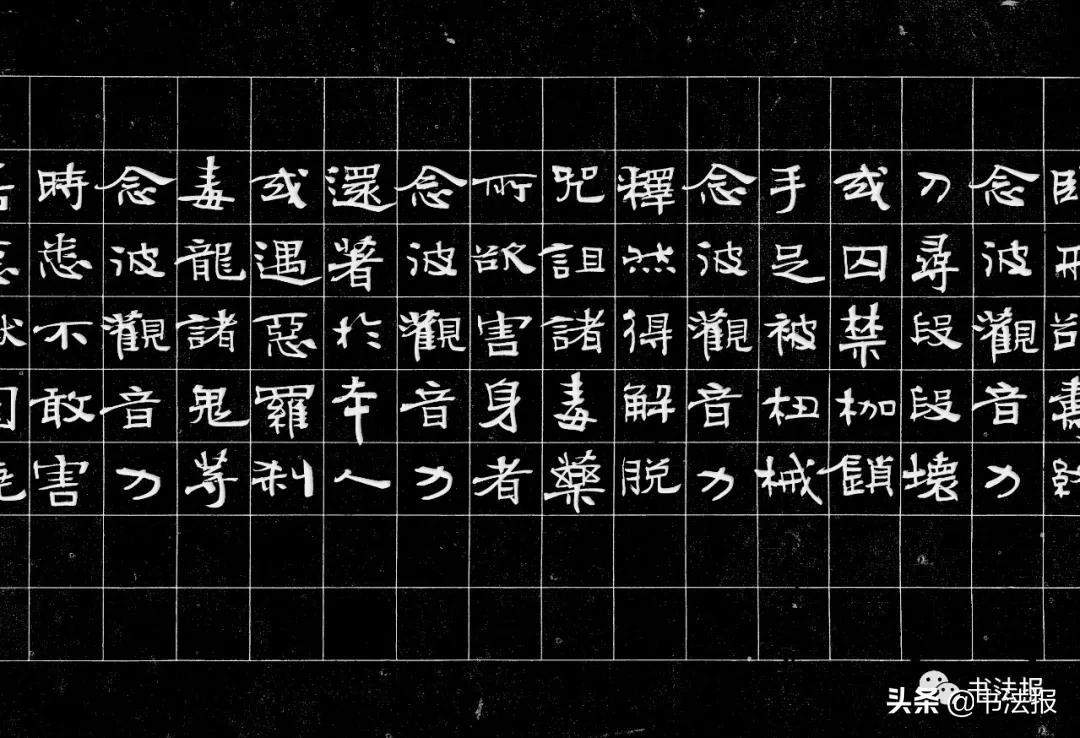 念彼觀音力
刀尋段段壞
或囚禁枷鎖
手足被杻械
念彼觀音力
釋然得解脫
咒詛諸毒藥
所欲害身者
念彼觀音力
還著於本人
或遇惡羅剎
毒龍諸鬼等
念彼觀音力
時悉不敢害
书法报
头条 @书法报